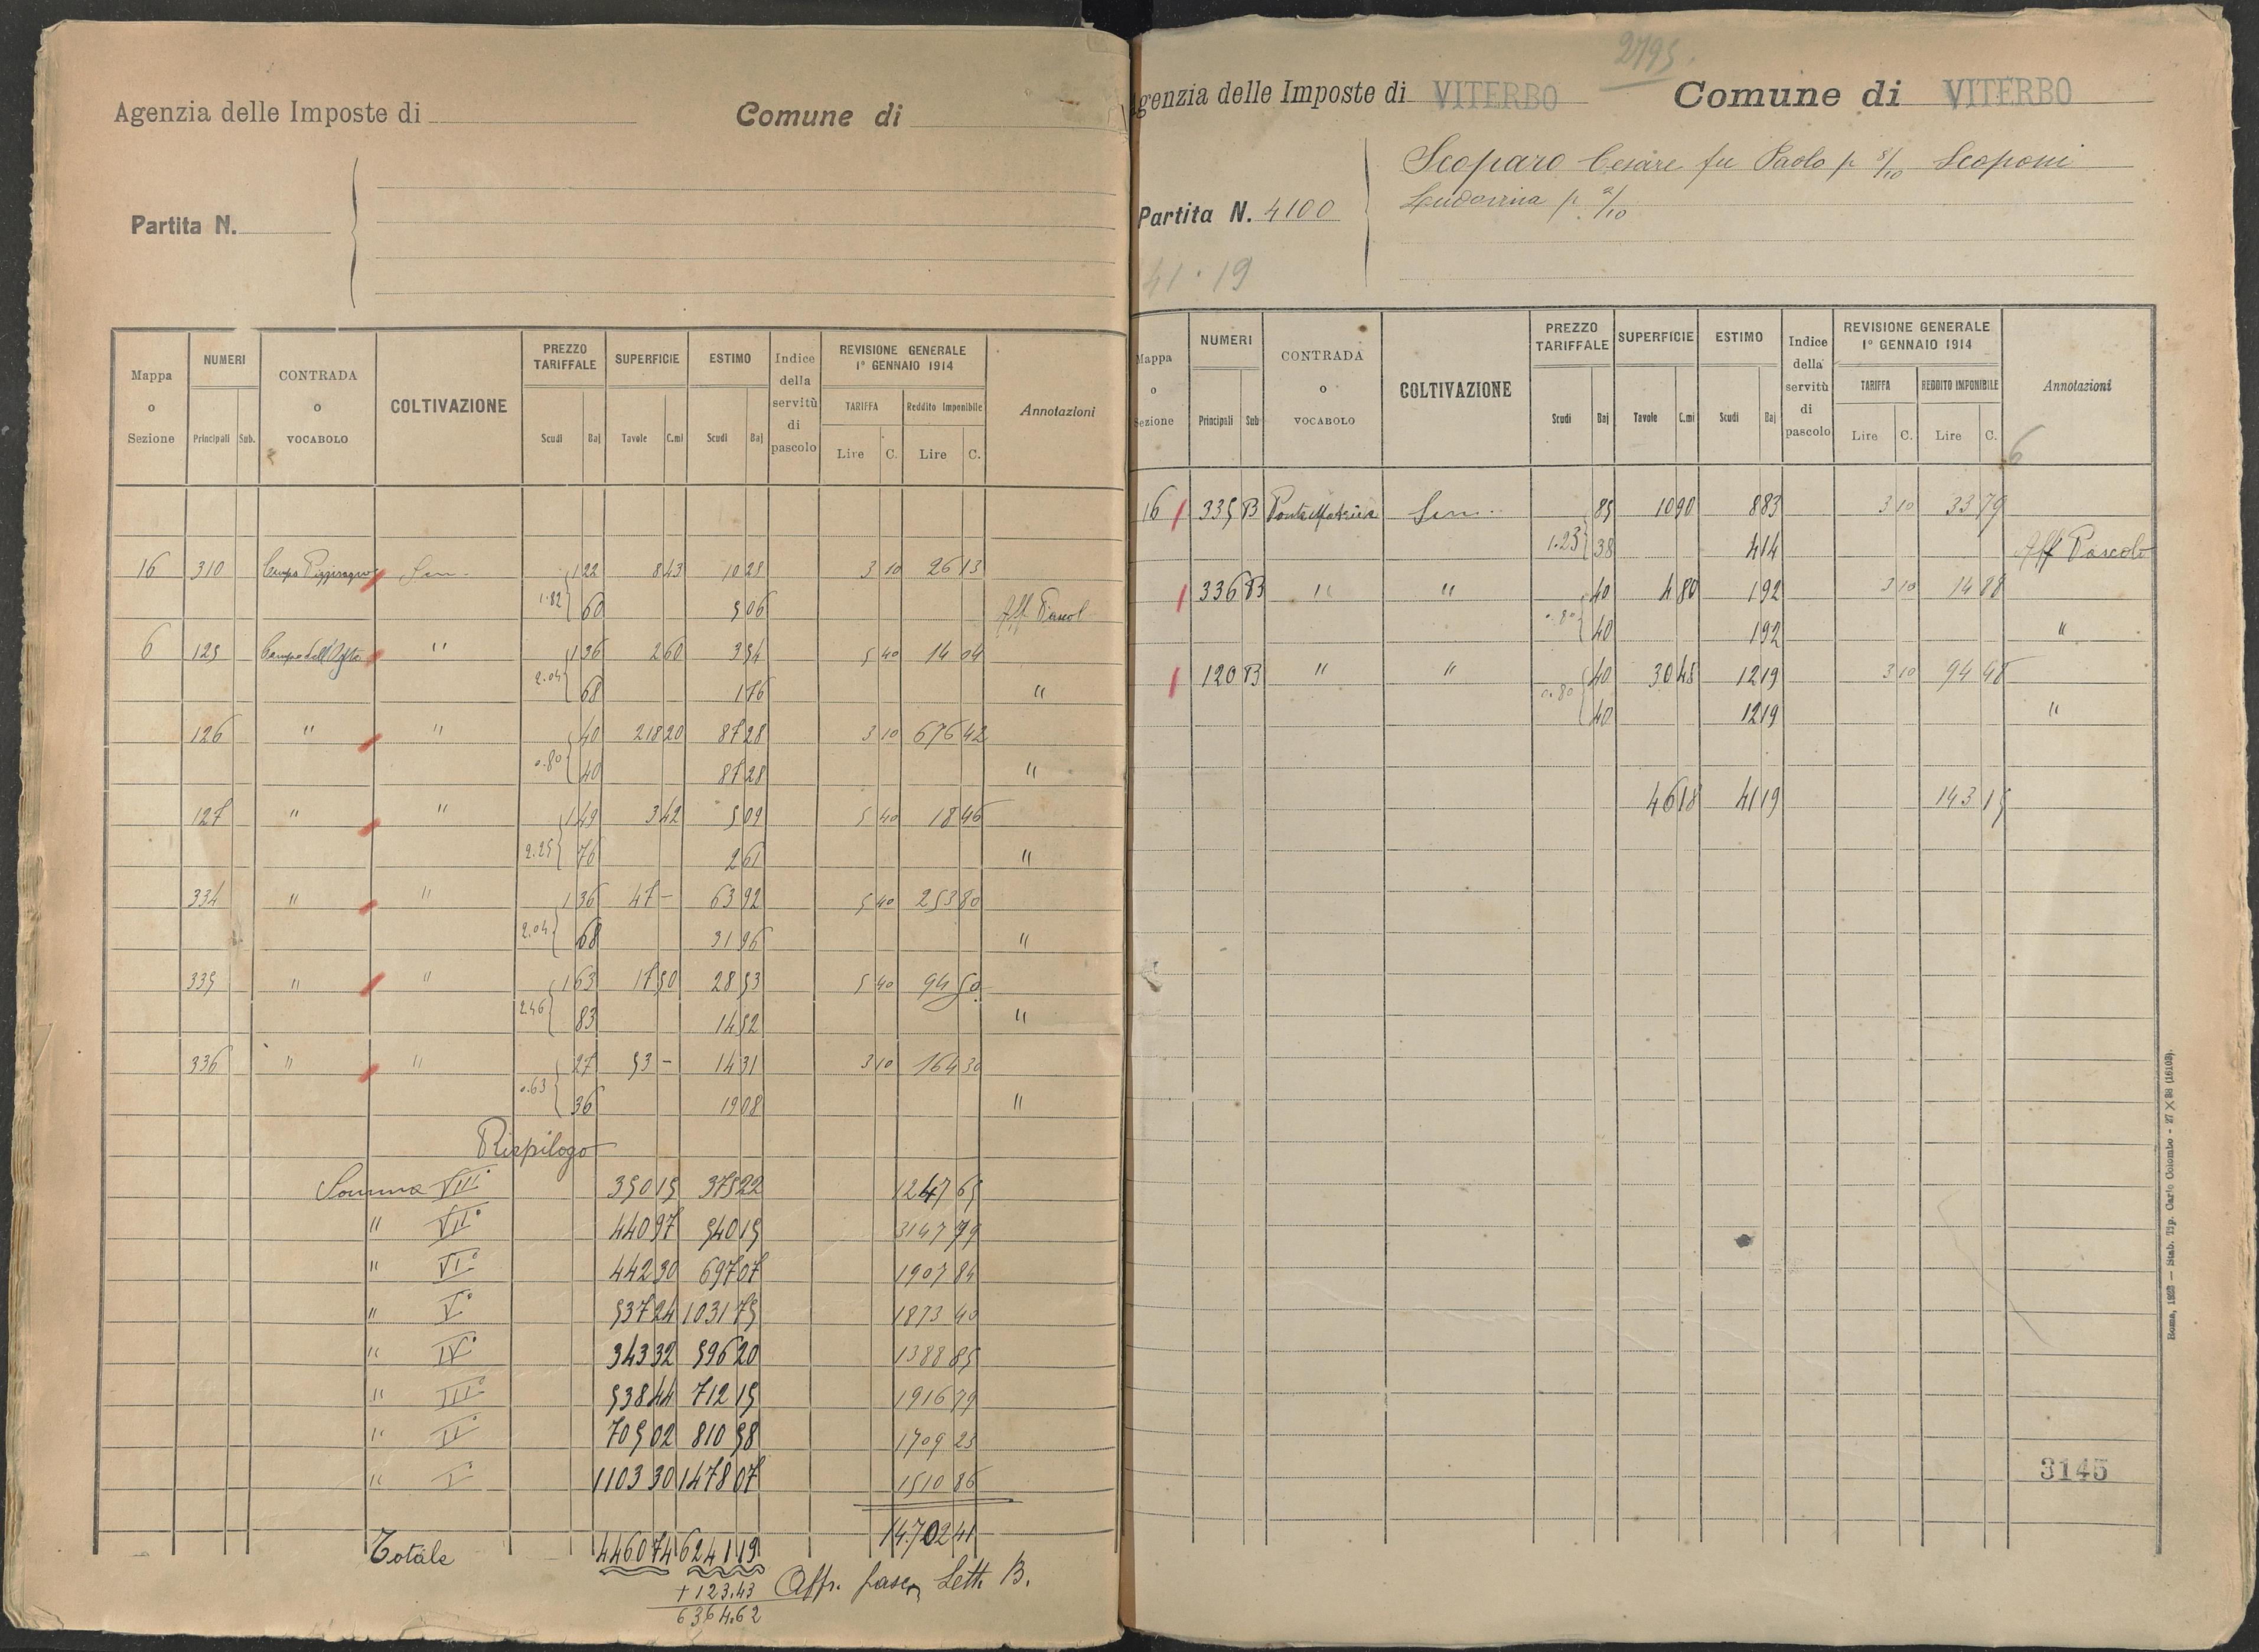 Agenzia delle Imposte di
Comune di
Partita N.
Mappa o Sezione
NUMERI
Principali Sub.
CONTRADA o VOCABOLO
COLTIVAZIONE
PREZZO TARIFFALE
Scudi Baj
SUPERFICIE
Tavole C.mi
ESTIMO
Scudi Baj
Indice della servitù di pascolo
REVISIONE GENERALE 1º GENNAIO 1914
TARIFFA
Lire C.
Reddito Imponibile
Lire C.
Annotazioni
16 310 Campo Sem. 1 22 8 43 10 28 3 10 26 13
1.82 60 5 06 Aff Pascol
6 125 Campo dell " 1 36 2 60 3 54 5 40 14 04
2.04 68 1 76 "
126 " " 40 218 20 87 28 3 10 676 42
0.80 40 87 28 "
127 " " 1 49 3 42 5 09 5 40 18 46
2.25 76 2 61 "
334 " " 1 36 47 - 63 92 5 40 253 80
2.04 68 31 96 "
335 " " 1 63 17 50 28 53 5 40 94 50
2.46 83 14 52 "
336 " " 27 53 - 14 31 3 10 164 30
0.63 36 19 08 "
Riepilogo
Somma VIIIº 350 15 375 22 1247 65
" VIIº 440 97 540 15 3147 79
" VIº 442 30 697 07 1907 84
" Vº 537 24 1031 75 1873 40
" IVº 343 32 596 20 1388 85
" IIIº 538 44 712 15 1916 79
" IIº 705 02 810 58 1709 23
" Iº 1103 30 1478 07 1510 86
14.702 41
Totale 4460 74 6241 19
+ 123.43 Affr. pasc. Lett. B.
6364.62
2795
genzia delle Imposte di VITERBO
Comune di VITERBO
Scoparo Cesare fu Paolo p 8/10 Scoponi
Ludovina p. 2/10
Partita N. 4100
41.19
Mappa o Sezione
NUMERI
Principali Sub
CONTRADA o VOCABOLO
COLTIVAZIONE
PREZZO TARIFFALE
Scudi Baj
SUPERFICIE
Tavole C.mi
ESTIMO
Scudi Baj
Indice della servitù di pascolo
REVISIONE GENERALE 1º GENNAIO 1914
TARIFFA
Lire C.
REDDITO IMPONIBILE
Lire C.
Annotazioni
6
16 335 B Ponte Sem. 85 10 90 8 83 3 10 33 79
1.23 38 4 14 Aff Pascolo
336 B " " 40 4 80 1 92 3 10 14 88
0.80 40 1 92 "
120 B " " 40 30 48 12 19 3 10 94 48
0.80 40 12 19 "
46 18 41 19 143 15
3145
Roma, 1923 — Stab. Tip. Carlo Colombo - 27 X 38 (16103).